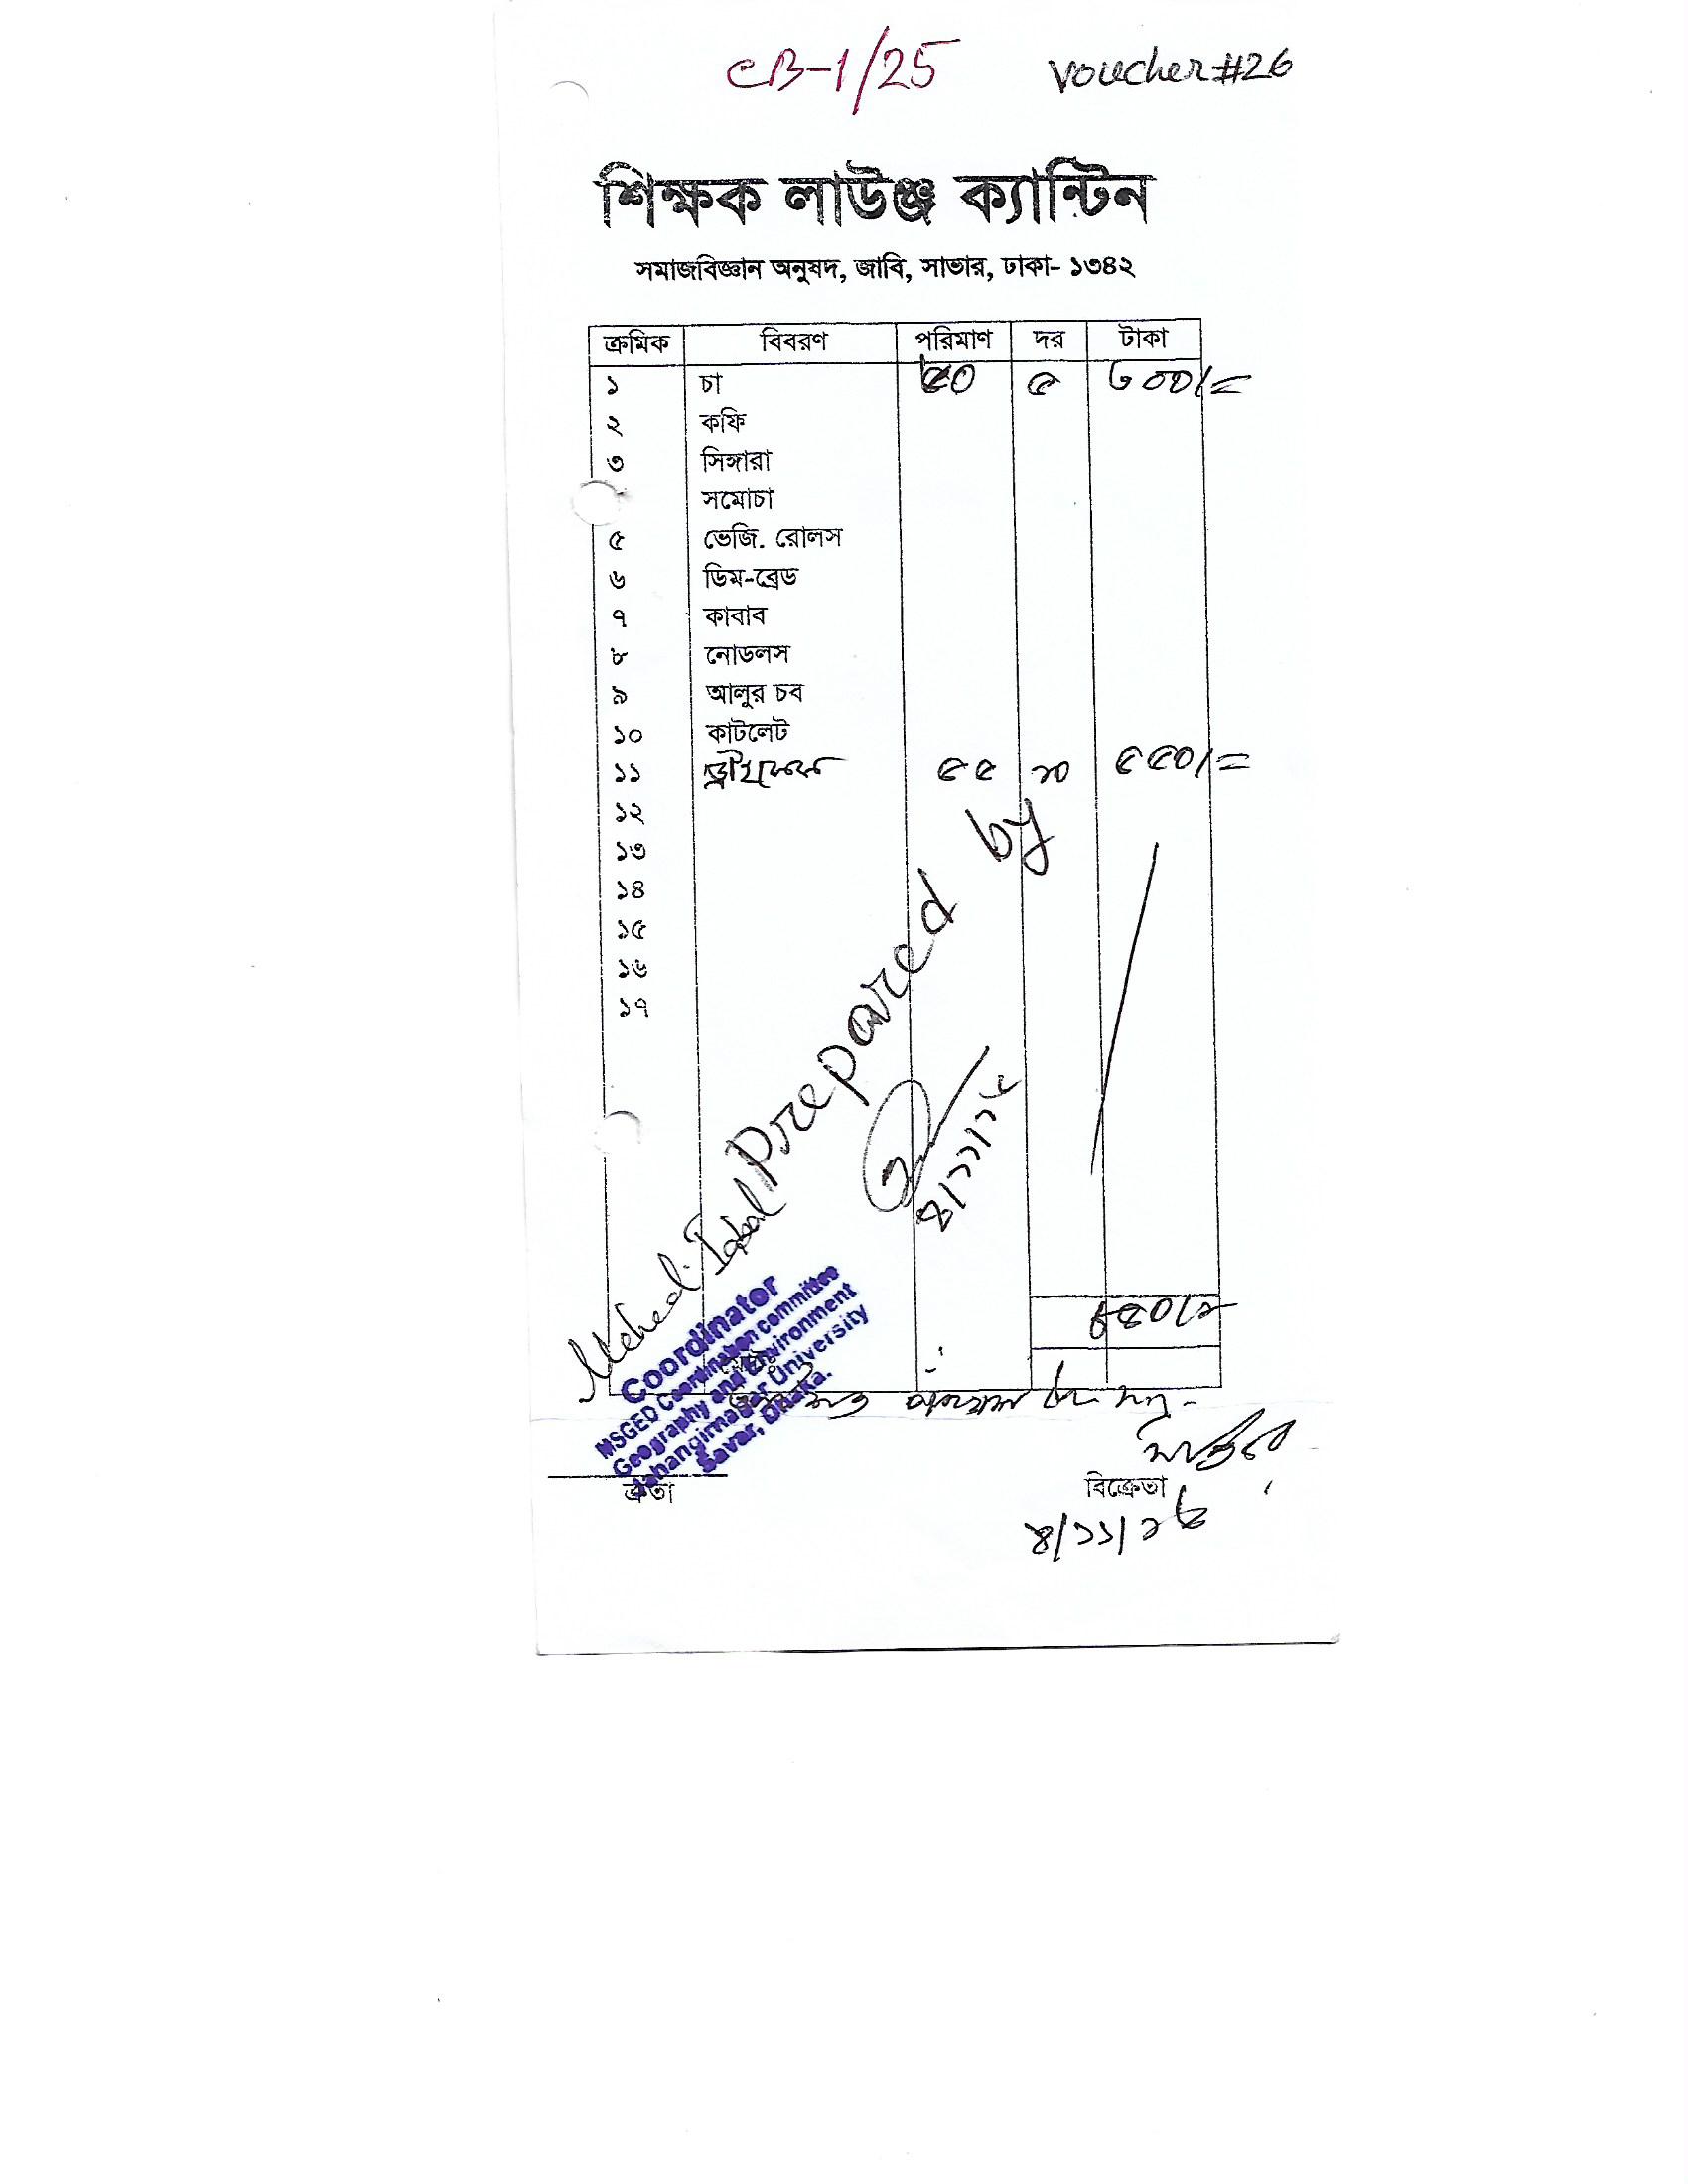 CB-1/25 Voucher#26
শিক্ষক লাউঞ্জ ক্যান্টিন
সমাজবিজ্ঞান অনুষদ, জাবি, সাভার, ঢাকা- ১৩৪২
ক্রমিক বিবরণ পরিমাণ দর টাকা
১ চা ৬০ ৫ ৩০০/=
২ কফি
৩ সিঙ্গারা
সমোচা
৫ ভেজি. রোলস
৬ ডিম-ব্রেড
৭ কাবাব
৮ নোডলস
৯ আলুর চব
১০ কাটলেট
১১ ৫৫ ১০ ৫৫০/=
১২
১৩
১৪
১৫
১৬
১৭
Prepared by
৪/১১/২৫
Mehedi Iqbal
Coordinator
MSGED Coordination committee
Geography and Environment
Jahangirnagar University
Savar, Dhaka.
৮৫০/=
ক্রেতা
বিক্রেতা
৪/১১/২৫